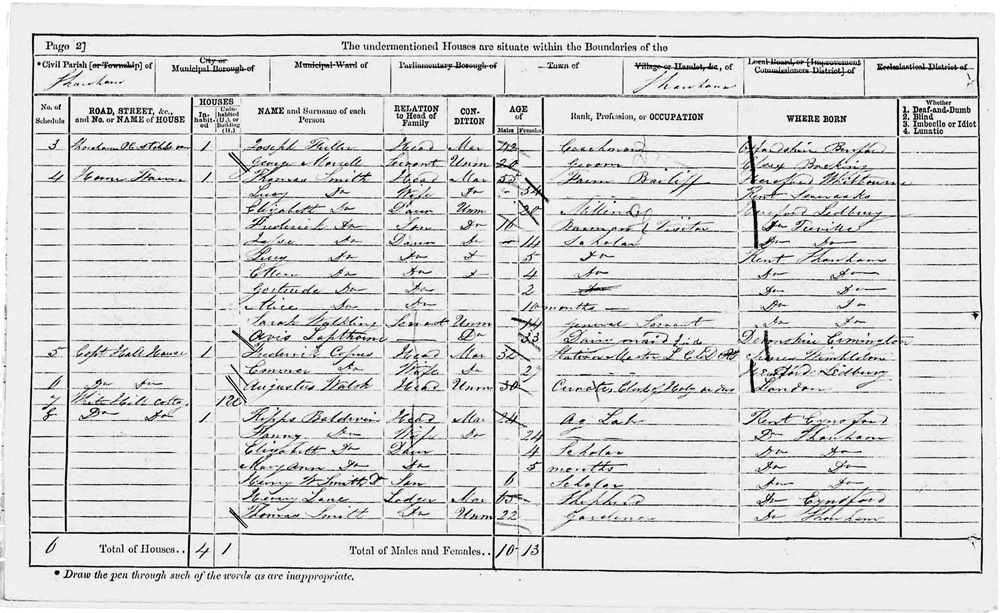 Page 2]
The undermentioned Houses are situate within the Boundaries of the
*Civil Parish [or Township] of
City or Municipal Borough of
Municipal Ward of
Parliamentary Borough of
Town of
Village or Hamlet, &c., of
Local Board, or [Improvement Commissioners District] of
Ecclesiastical District of
Shoreham
Shoreham
No. of Schedule
ROAD, STREET, &c., and No. or NAME of HOUSE
HOUSES
Inhabited
Uninhabited (U.), or Building (B.)
NAME and Surname of each Person
RELATION to Head of Family
CONDITION
AGE
Males
Females
Rank, Profession, or OCCUPATION
WHERE BORN
Whether
1. Deaf-and-Dumb
2. Blind
3. Imbecile or Idiot
4. Lunatic
3 Shoreham 1 Joseph Fuller Head Mar 42 Coachman Oxfordshire Burford
George Servant Unm 20 Groom Essex Bocking
4 Home Farm 1 Thomas Smith Head Mar 55 Farm Bailiff Hereford Whitbourne
Lucy Do Wife Do 34 Kent Sevenoaks
Elizabeth Do Daur Unm 20 Milliner Hereford Ledbury
Frederick Do Son Do 16 Visitor Do
Do Daur Do 14 Scholar Do Do
Lucy Do Do 5 Do Kent Shoreham
Ellen Do Do 4 Do Do Do
Gertrude Do Do 2 Do Do Do
Alice Do Do 10 months Do Do
Sarah Servant Unm 14 General Servant Do Do
Avis Lapthorne Do 23 Dairymaid Devonshire Ermington
5 Copt Hall House 1 Frederick Head Mar 32 Station Master L C & D Surrey Wimbledon
Emma Do Wife Do 27 Hereford Ledbury
6 Do Do Augustus Walsh Head Unm 30 Curate London
7 White Hill Cottage
8 Do Do 1 Baldwin Head Mar 24 Ag Lab Kent Eynsford
Fanny Do Wife Do 24 Do Shoreham
Elizabeth Do Daur 4 Scholar Do Do
Mary Ann Do Do 5 months Do Do
Henry W Smith Son 6 Scholar Do Do
Henry Lane Lodger Mar 65 Shepherd Do Eynsford
Thomas Smith Do Unm 22 Gardener Do Shoreham
6 Total of Houses.. 4 1 Total of Males and Females.. 10 13
* Draw the pen through such of the words as are inappropriate.